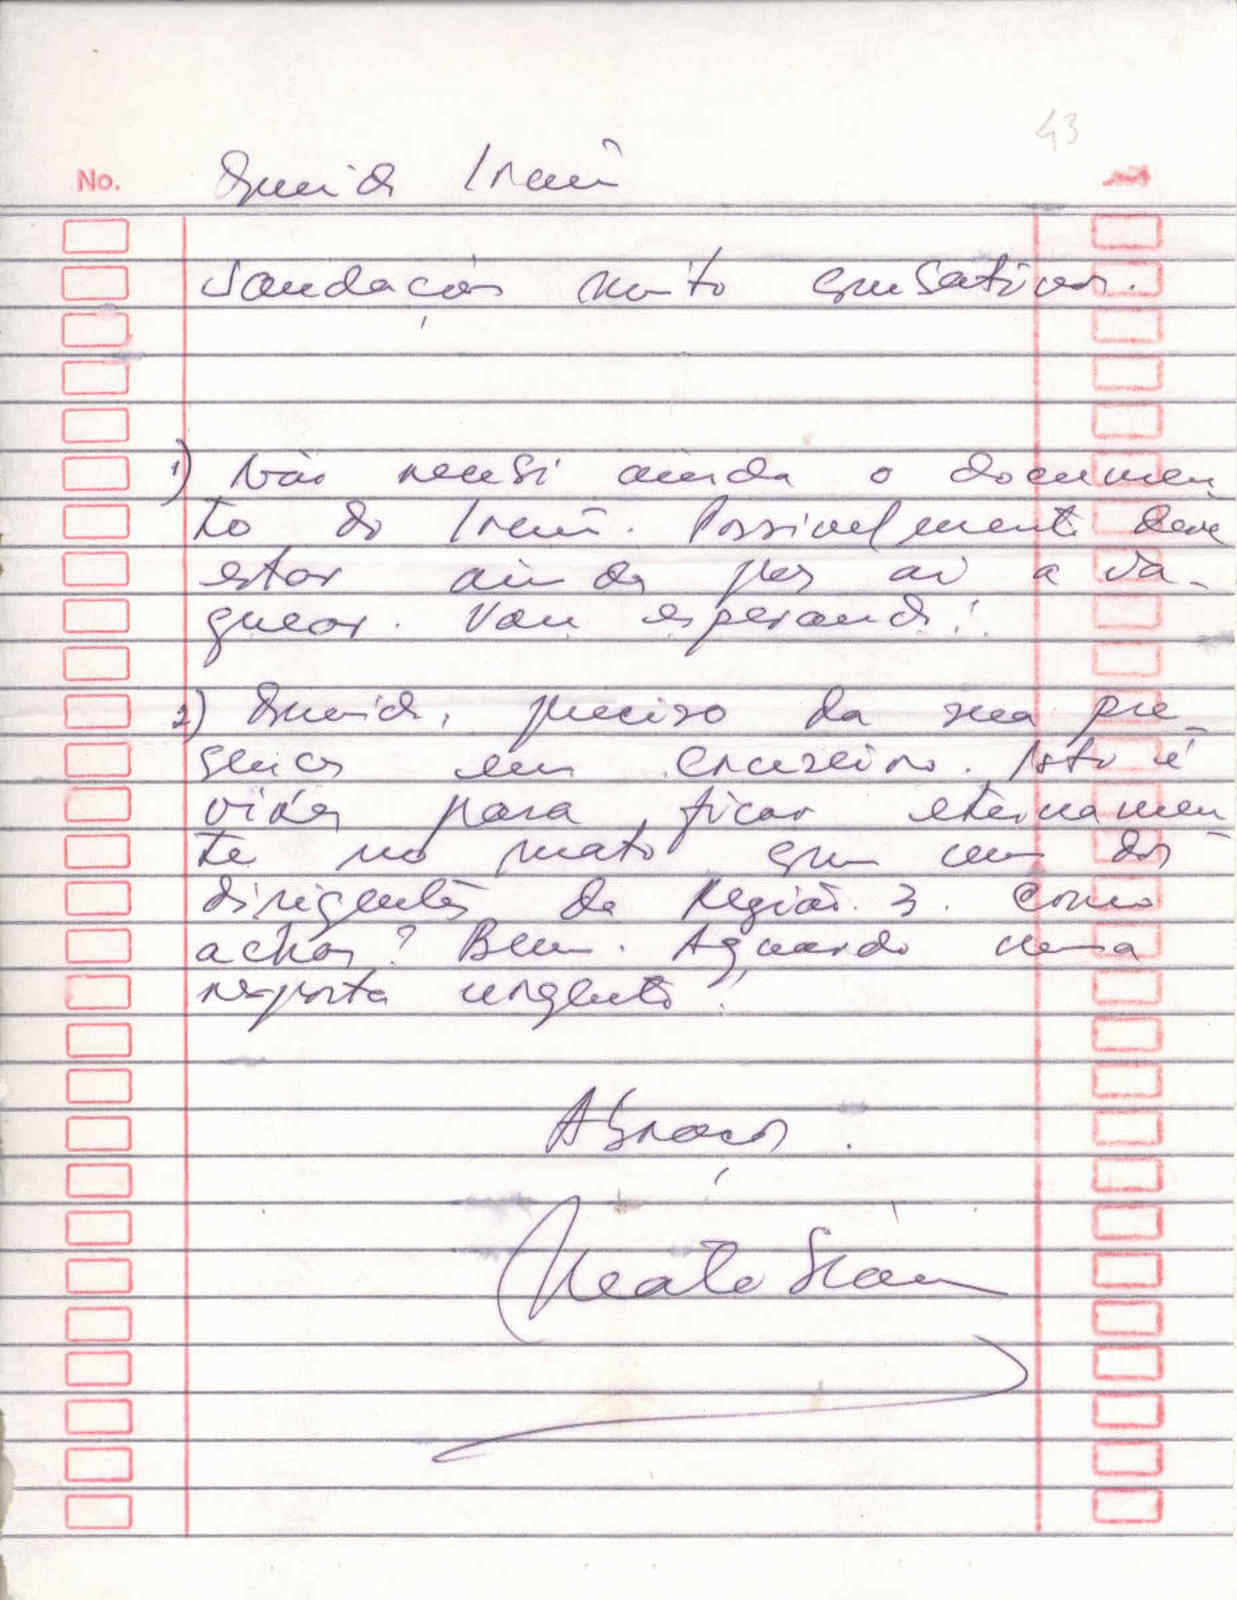 43
No.
Querido Irmão
Saudações muito combativas.
1) Não recebi ainda o documen
to do Irmão. Possivelmente deve
estar ainda por aí a va-
guear. Vou esperando!
2) Querido, preciso da sua pre-
sença em Cruzeiro. Isto é
virá para ficar eternamen-
te no mato com um dos
dirigentes da Região 3. Como
achas? Bem. Aguardo uma
resposta urgente!
Abraços.